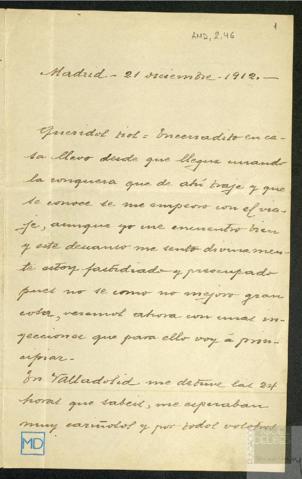 1
AMD, 2, 46
Madrid - 21 diciembre - 1912. -
Queridos tios = Encerradito en ca-
sa llevo desde que llegue curando
la ronquera que de ahí traje y que
se conoce se me empeoro con el via-
je, aunque yo me encuentro bien
y este descanso me sentó divinamen-
te estoy fastidiado y preocupado
pues no se como no mejoro gran
cosa, veremos ahora con unas in-
yecciones que para ello voy á prin-
cipiar.
En Valladolid me detuve las 24
horas que sabeis, me esperaban
muy cariñosos y por todos
MD